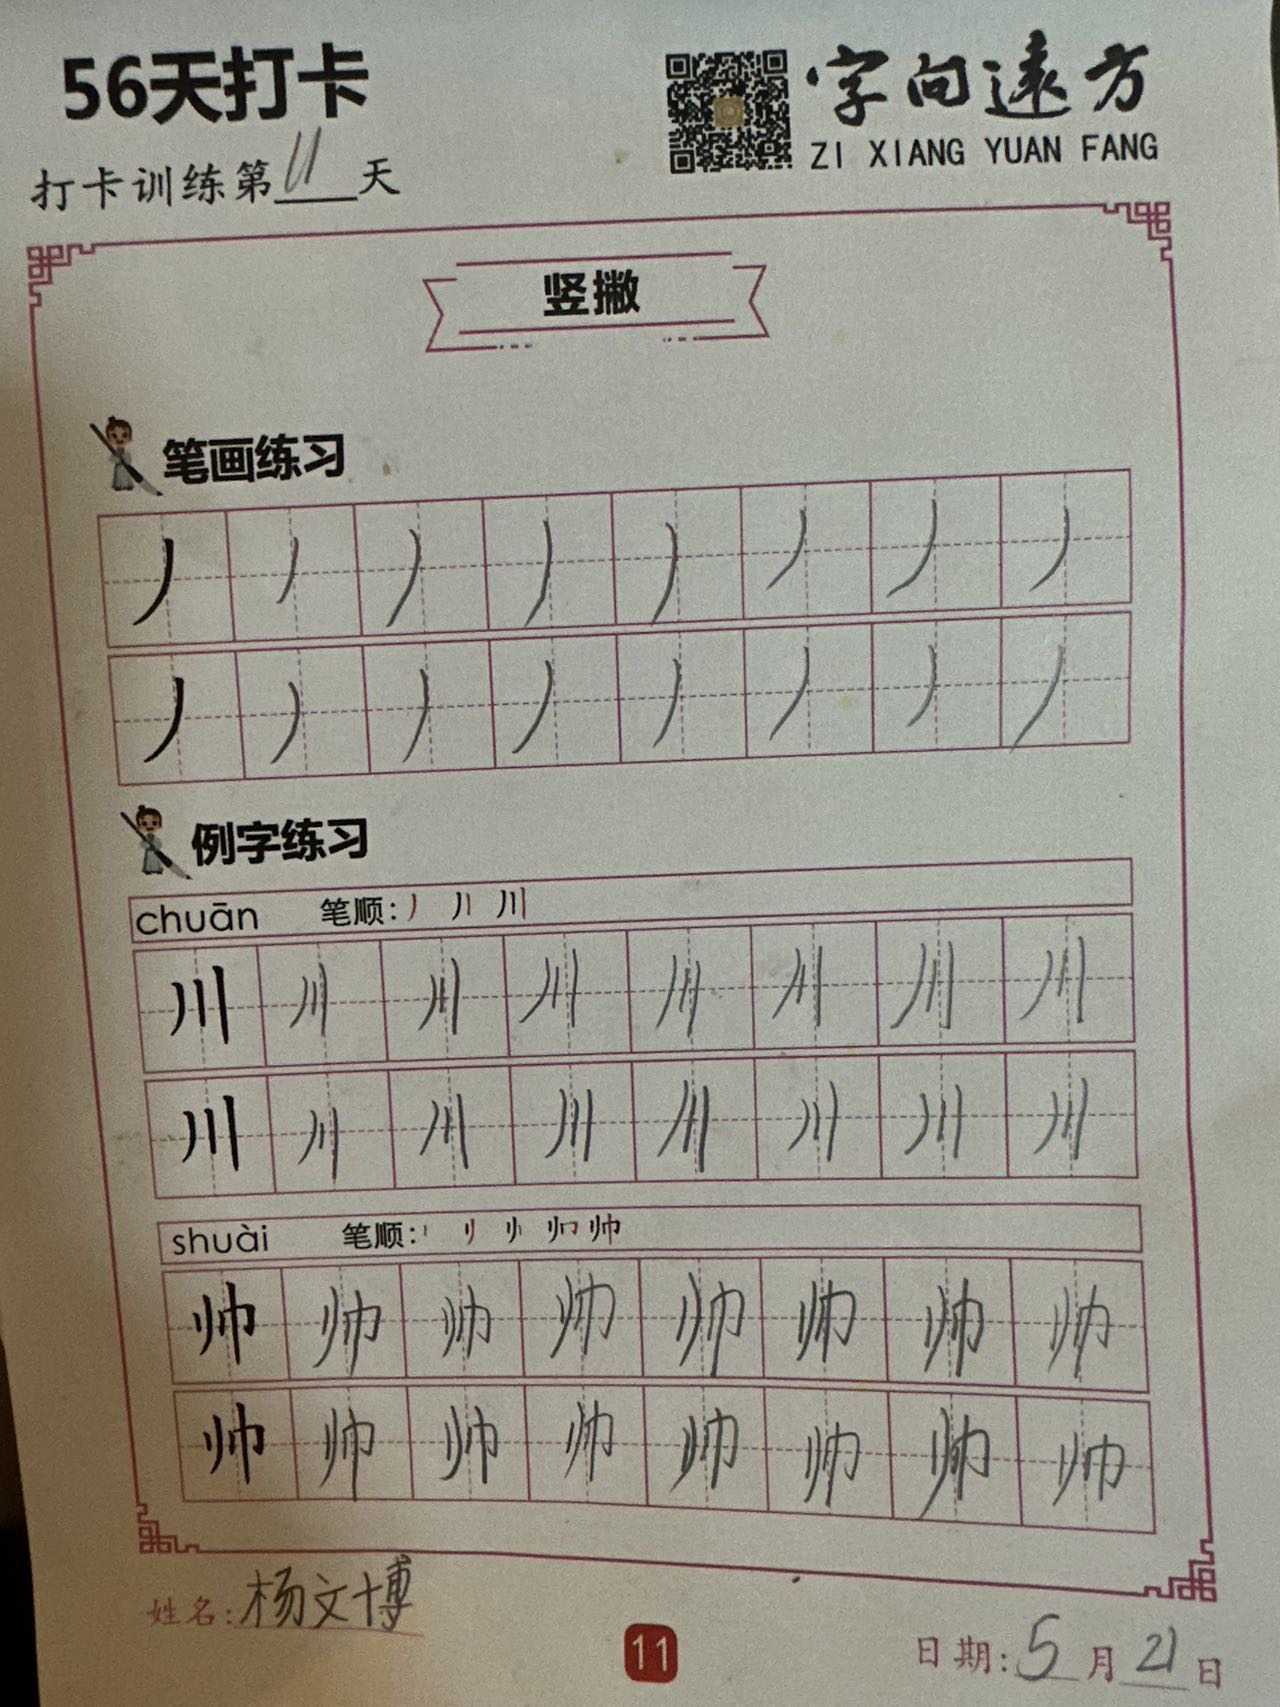 56天打卡
字向遠方
ZI XIANG YUAN FANG
打卡训练第11天
竖撇
笔画练习
丿丿丿丿丿丿丿丿
丿丿丿丿丿丿丿丿
例字练习
chuān 笔顺: 丿 丿丨 川
川川川川川川川川
川川川川川川川川
shuài 笔顺: 帅
帅帅帅帅帅帅帅帅
帅帅帅帅帅帅帅帅
姓名: 杨文博
11
日期: 5月21日